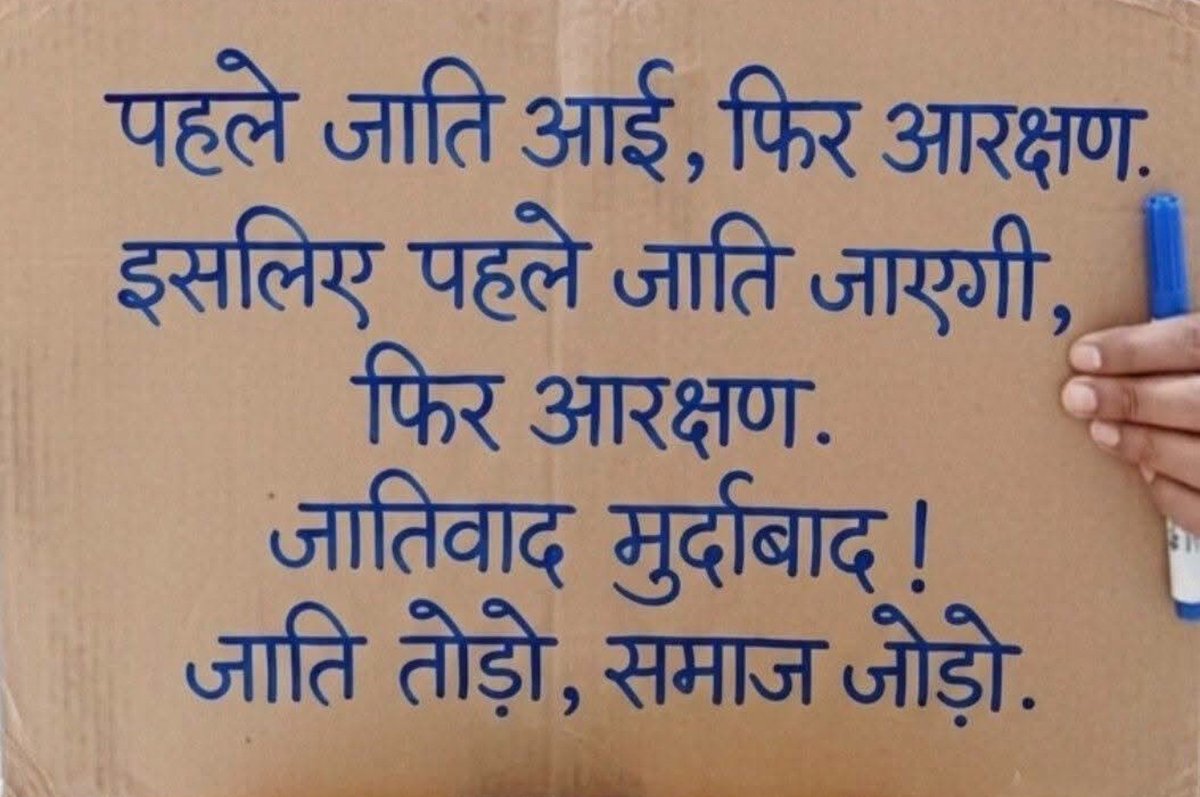 पहले जाति आई, फिर आरक्षण.
इसलिए पहले जाति जाएगी,
फिर आरक्षण.
जातिवाद मुर्दाबाद!
जाति तोड़ो, समाज जोड़ो.